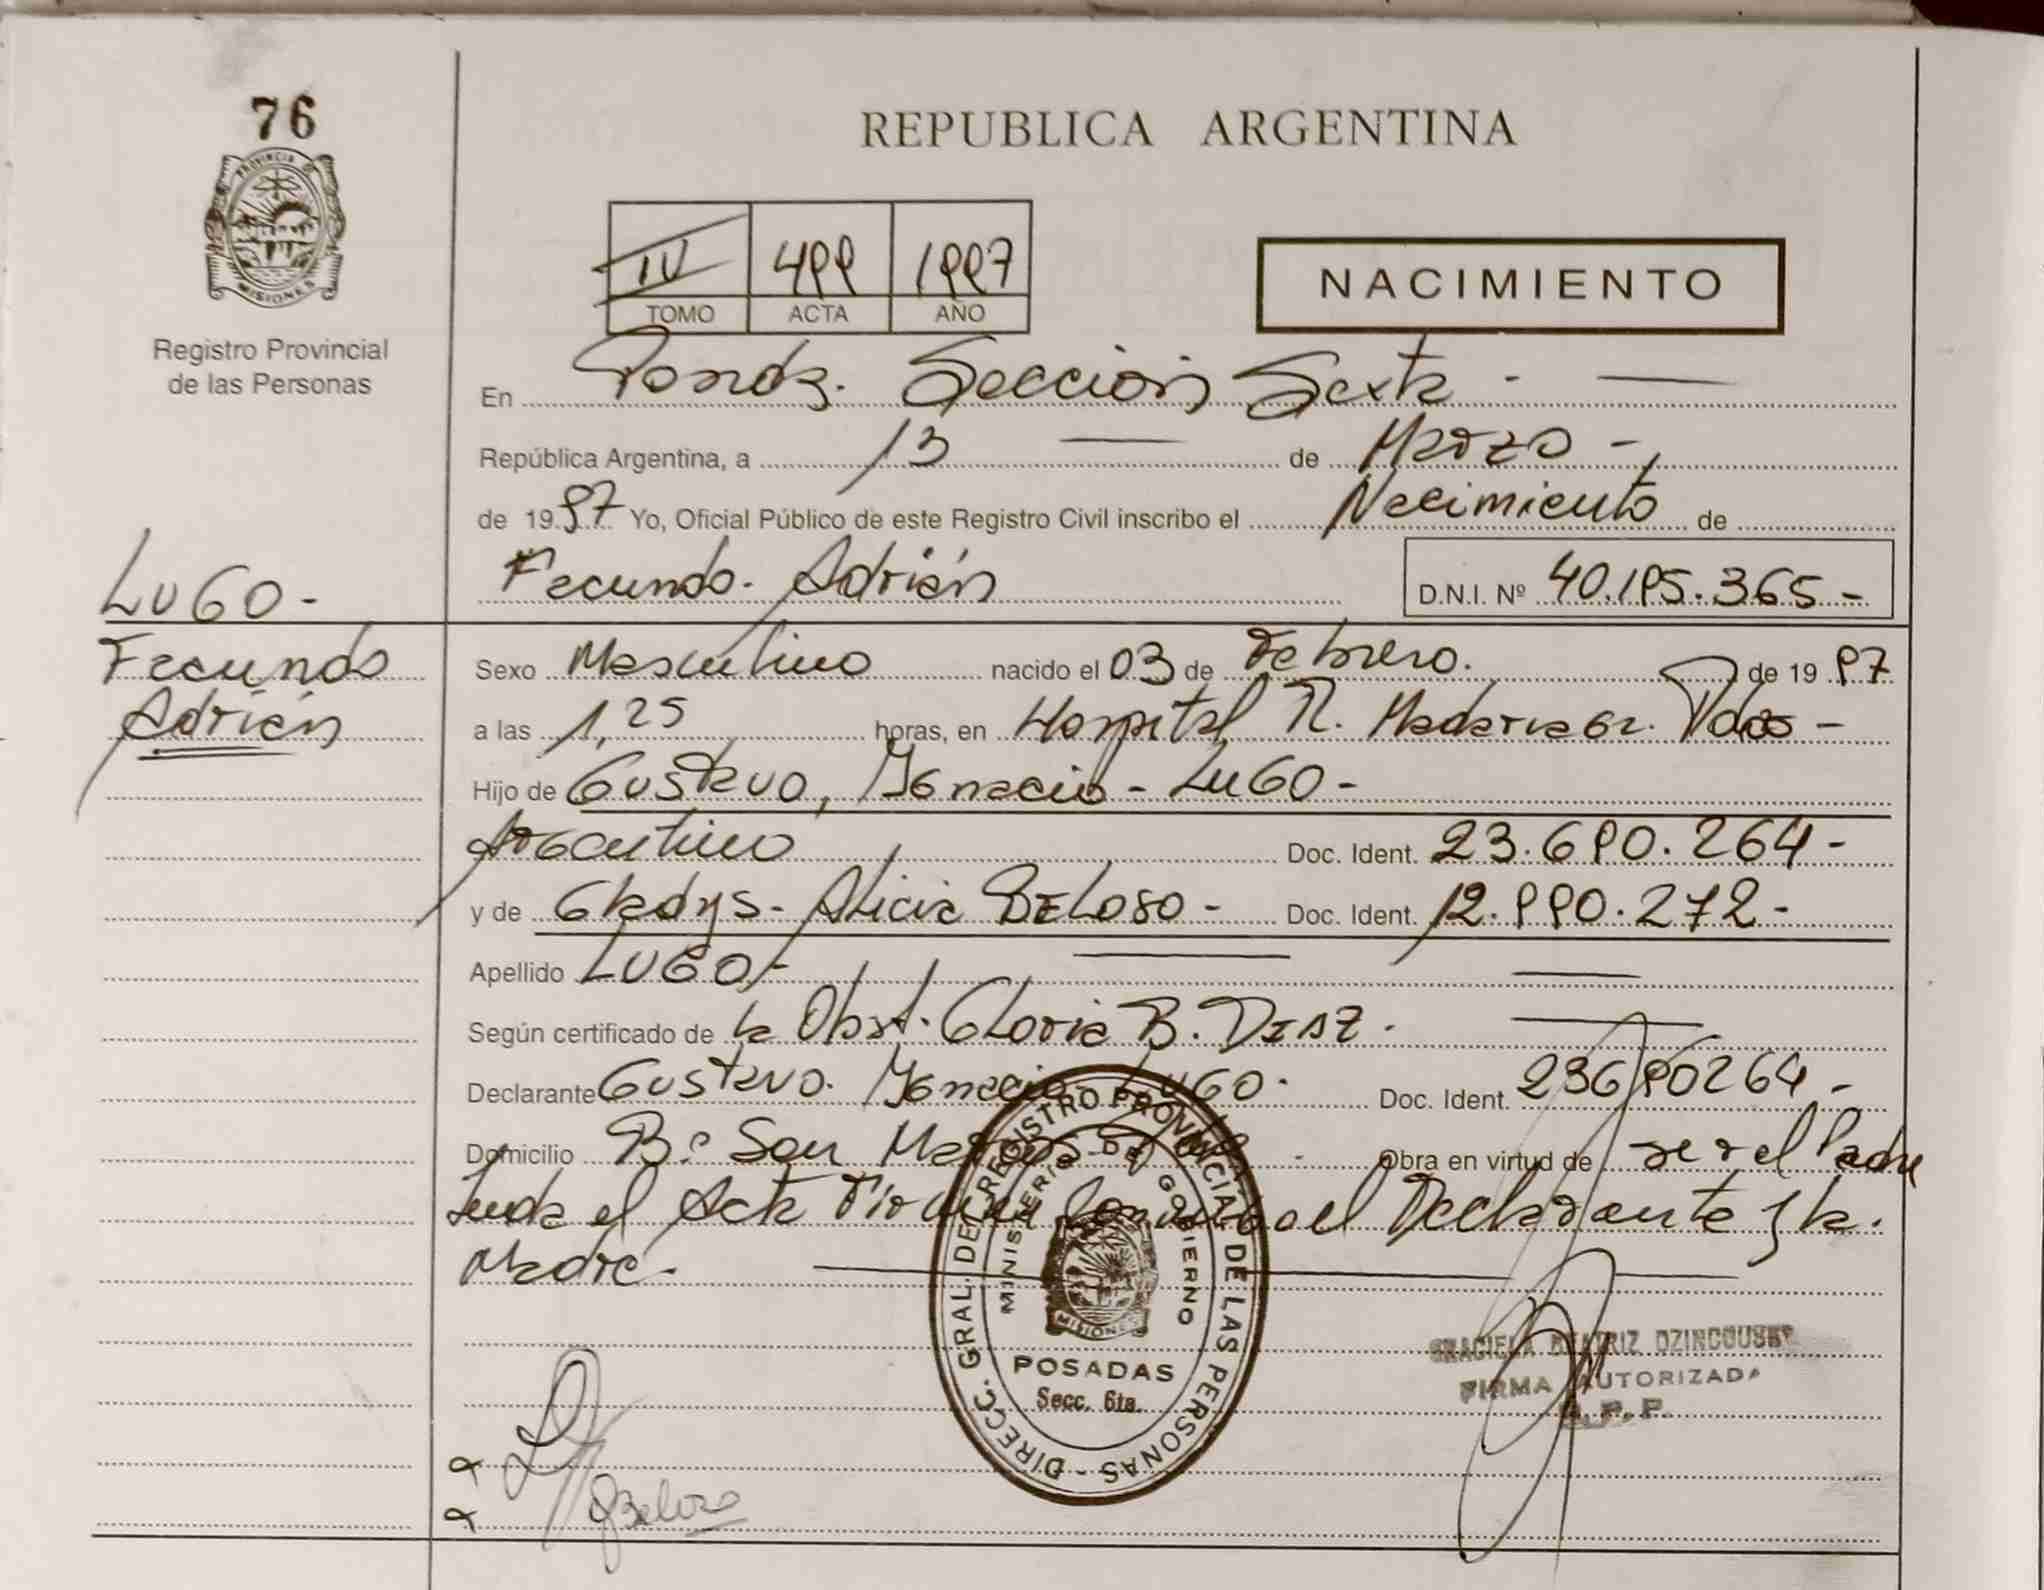 76
PROVINCIA DE
MISIONES
Registro Provincial
de las Personas
REPUBLICA ARGENTINA
IV 499 1997
TOMO ACTA AÑO
NACIMIENTO
En Posadas. Sección Sexta -
República Argentina, a 13 de Marzo -
de 1997 Yo, Oficial Público de este Registro Civil inscribo el Nacimiento de
Facundo. Adrián
D.N.I. Nº 40.195.365.-
LUGO -
Facundo
Adrián
Sexo Masculino nacido el 03 de Febrero. de 1997
a las 1,25 horas, en Hospital R. Madariaga. Pdas -
Hijo de Gustavo, Ignacio - LUGO -
Argentino Doc. Ident. 23.690.264 -
y de Gladys - Alicia BELOSO - Doc. Ident. 12.990.272 -
Apellido LUGO -
Según certificado de la Obst. Gloria B. DIAZ.
Declarante Gustavo. Ignacio LUGO. Doc. Ident. 23690264 -
Domicilio Bº San Marcos Obra en virtud de ser el Padre
Leída el Acta Firman el Declarante y la.
Madre.
DIRECC. GRAL. DEL REGISTRO PROVINCIAL DE LAS PERSONAS -
MINISTERIO DE GOBIERNO
MISIONES
POSADAS
Secc. 6ta.
GRACIELA BEATRIZ
FIRMA AUTORIZADA
R. P. P.
Beloso